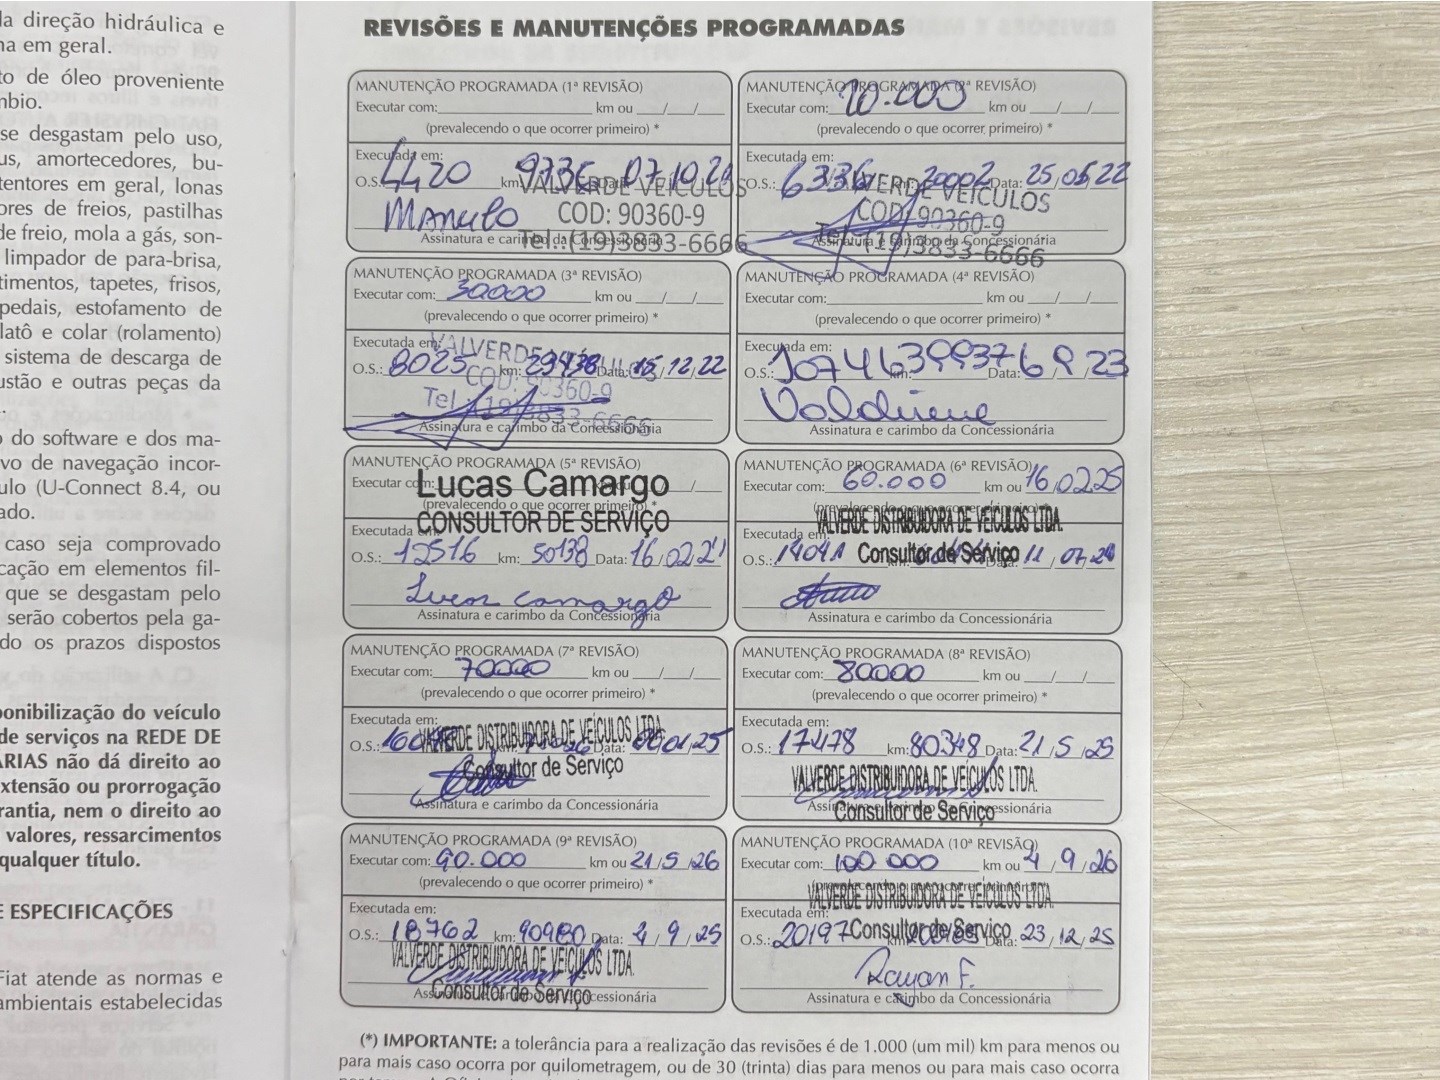 la direção hidráulica e
na em geral.
to de óleo proveniente
nbio.
se desgastam pelo uso,
us, amortecedores, bu-
tentores em geral, lonas
ores de freios, pastilhas
de freio, mola a gás, son-
limpador de para-brisa,
timentos, tapetes, frisos,
pedais, estofamento de
latô e colar (rolamento)
sistema de descarga de
ustão e outras peças da
o do software e dos ma-
vo de navegação incor-
ulo (U-Connect 8.4, ou
ado.
caso seja comprovado
cação em elementos fil-
que se desgastam pelo
serão cobertos pela ga-
do os prazos dispostos
ponibilização do veículo
de serviços na REDE DE
ARIAS não dá direito ao
extensão ou prorrogação
rantia, nem o direito ao
valores, ressarcimentos
qualquer título.
E ESPECIFICAÇÕES
Fiat atende as normas e
ambientais estabelecidas
REVISÕES E MANUTENÇÕES PROGRAMADAS
MANUTENÇÃO PROGRAMADA (1ª REVISÃO)
Executar com: km ou / /
(prevalecendo o que ocorrer primeiro) *
Executada em:
O.S.: 4420 km: 9736 Data: 07.10.21
VALVERDE VEÍCULOS
COD: 90360-9
Tel.:(19)3833-6666
Assinatura e carimbo da Concessionária
MANUTENÇÃO PROGRAMADA (2ª REVISÃO)
Executar com: 20.000 km ou / /
(prevalecendo o que ocorrer primeiro) *
Executada em:
O.S.: 6336 20002 Data: 25,05,22
VALVERDE VEÍCULOS
COD: 90360-9
Tel.:(19)3833-6666
Assinatura e carimbo da Concessionária
MANUTENÇÃO PROGRAMADA (3ª REVISÃO)
Executar com: 30000 km ou / /
(prevalecendo o que ocorrer primeiro) *
Executada em:
O.S.: 8025 km: 29438 Data: 15,12,22
VALVERDE VEÍCULOS
COD: 90360-9
Tel.:(19)3833-6666
Assinatura e carimbo da Concessionária
MANUTENÇÃO PROGRAMADA (4ª REVISÃO)
Executar com: km ou / /
(prevalecendo o que ocorrer primeiro) *
Executada em:
O.S.: 10746 km: 39937 Data: 6,9,23
Assinatura e carimbo da Concessionária
MANUTENÇÃO PROGRAMADA (5ª REVISÃO)
Executar com: / /
Lucas Camargo
(prevalecendo o que ocorrer primeiro) *
CONSULTOR DE SERVIÇO
Executada em:
O.S.: 12516 km: 50138 Data: 16,02,24
Lucas Camargo
Assinatura e carimbo da Concessionária
MANUTENÇÃO PROGRAMADA (6ª REVISÃO)
Executar com: 60.000 km ou 16,02,25
(prevalecendo o que ocorrer primeiro) *
VALVERDE DISTRIBUIDORA DE VEÍCULOS LTDA.
Executada em:
Consultor de Serviço
O.S.: 11,07,24
Assinatura e carimbo da Concessionária
MANUTENÇÃO PROGRAMADA (7ª REVISÃO)
Executar com: 70000 km ou / /
(prevalecendo o que ocorrer primeiro) *
Executada em:
VALVERDE DISTRIBUIDORA DE VEÍCULOS LTDA.
O.S.: Data: 01,25
Consultor de Serviço
Assinatura e carimbo da Concessionária
MANUTENÇÃO PROGRAMADA (8ª REVISÃO)
Executar com: 80000 km ou / /
(prevalecendo o que ocorrer primeiro) *
Executada em:
O.S.: 17478 km: 80348 Data: 21,5,25
VALVERDE DISTRIBUIDORA DE VEÍCULOS LTDA.
Assinatura e carimbo da Concessionária
Consultor de Serviço
MANUTENÇÃO PROGRAMADA (9ª REVISÃO)
Executar com: 90.000 km ou 21/5/26
(prevalecendo o que ocorrer primeiro) *
Executada em:
O.S.: 18762 km: 90980 Data: 4,9,25
VALVERDE DISTRIBUIDORA DE VEÍCULOS LTDA.
Assinatura e carimbo da Concessionária
Consultor de Serviço
MANUTENÇÃO PROGRAMADA (10ª REVISÃO)
Executar com: 100 000 km ou 4,9,26
(prevalecendo o que ocorrer primeiro) *
VALVERDE DISTRIBUIDORA DE VEÍCULOS LTDA.
Executada em:
Consultor de Serviço
O.S.: 20197 Data: 23,12,25
Rayan F.
Assinatura e carimbo da Concessionária
(*) IMPORTANTE: a tolerância para a realização das revisões é de 1.000 (um mil) km para menos ou
para mais caso ocorra por quilometragem, ou de 30 (trinta) dias para menos ou para mais caso ocorra